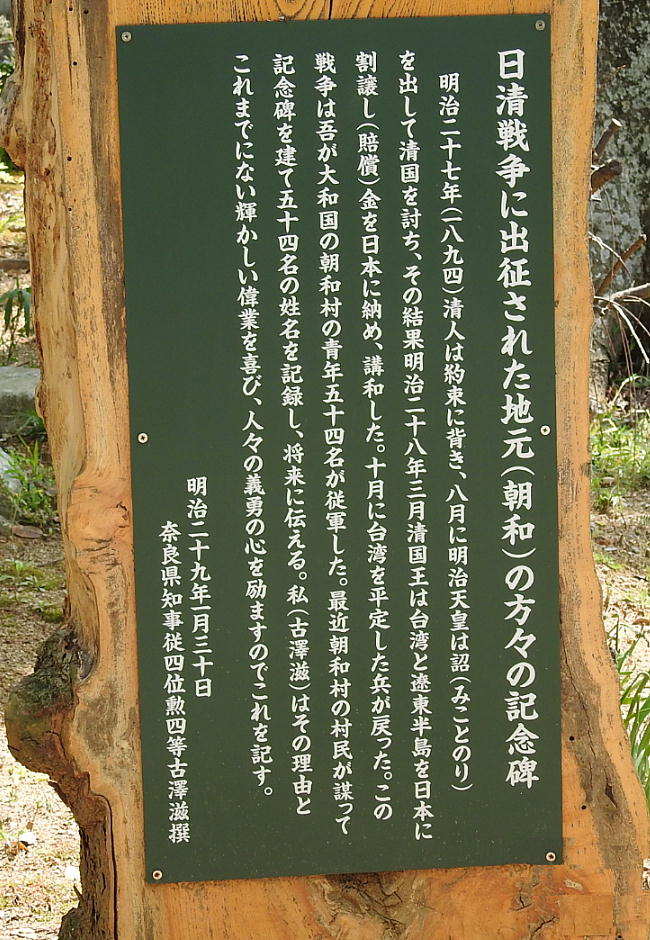 日清戦争に出征された地元(朝和)の方々の記念碑
明治二十七年(一八九四)清人は約束に背き、八月に明治天皇は詔(みことのり)
を出して清国を討ち、その結果明治二十八年三月清国王は台湾と遼東半島を日本に
割譲し(賠償)金を日本に納め、講和した。十月に台湾を平定した兵が戻った。この
戦争は吾が大和国の朝和村の青年五十四名が従軍した。最近朝和村の村民が謀って
記念碑を建て五十四名の姓名を記録し、将来に伝える。私(古澤滋)はその理由と
これまでにない輝かしい偉業を喜び、人々の義勇の心を励ますのでこれを記す。
明治二十九年一月三十日
奈良県知事従四位勲四等古澤滋撰